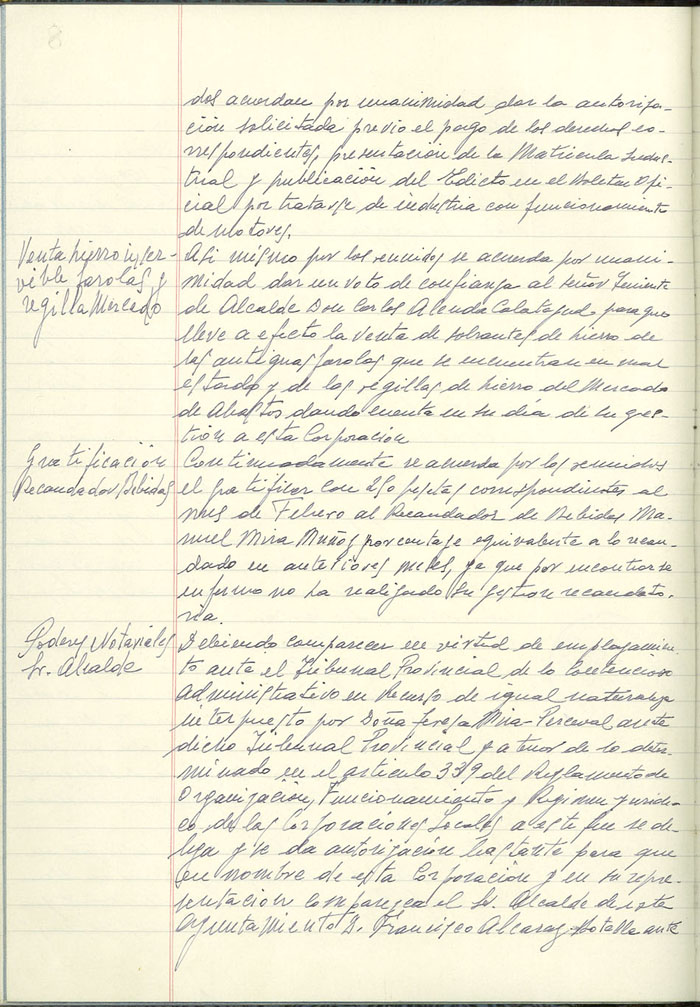 dos acuerdan por unanimidad dar la autoriza-
ción solicitada previo el pago de los derechos co-
rrespondientes, presentación de la Matricula Indus-
trial y publicación del Edicto en el Boletin Ofi-
cial por tratarse de industria con funcionamiento
de motores.
Venta hierro inser-
vible farolas y
regilla Mercado
Asi mismo por los reunidos se acuerda por unani-
midad dar un voto de confianza al señor Teniente
de Alcalde Don Carlos Calatayud para que
lleve a efecto la venta de sobrantes de hierro de
las antiguas farolas que se encuentran en mal
estado y de las regillas de hierro del Mercado
de Abastos dando cuenta en su día de su ges-
tión a esta Corporación
Gratificación
Recaudador Bebidas
Continuadamente se acuerda por los reunidos
el gratificar con 250 pesetas correspondientes al
mes de Febrero al Recaudador de Bebidas Ma-
nuel Mira Muñoz porcentaje equivalente a lo recau-
dado en anteriores meses, ya que por encontrarse
enfermo no ha realizado su gestion recaudato-
ria.
Poderes Notariales
Sr. Alcalde
Debiendo comparecer en virtud de emplazamien-
to ante el Tribunal Provincial de lo Contencioso
Administrativo en Recurso de igual naturaleza
interpuesto por Doña Teresa Mira-Perceval ante
dicho Tribunal Provincial y a tenor de lo deter-
minado en el articulo 339 del Reglamento de
Organización, Funcionamiento y Regimen juridi-
co de las Corporaciones Locales a este fin se de-
lega y se da autorización bastante para que
en nombre de esta Corporación y en su repre-
sentacion comparezca el Sr. Alcalde de este
Ayuntamiento D. Francisco Alcaraz ante